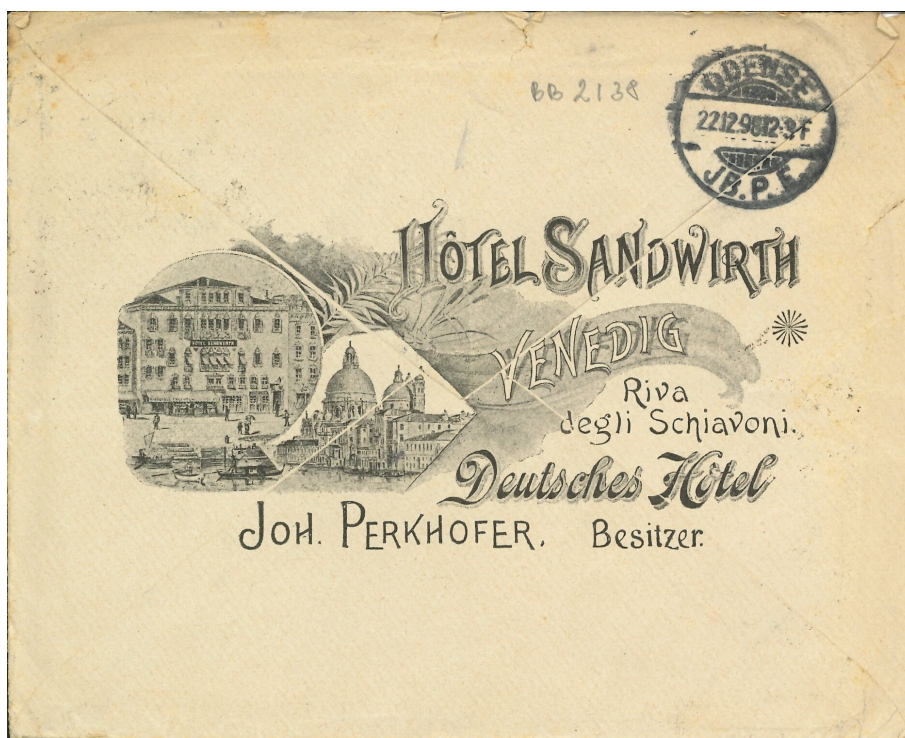 BB 2138
ODENSE
22.12.98 12-3 F
JB.P.E.
HÔTEL SANDWIRTH
VENEDIG
HÔTEL SANDWIRTH
Riva
degli Schiavoni.
Deutsches Hôtel
JOH. PERKHOFER. Besitzer.